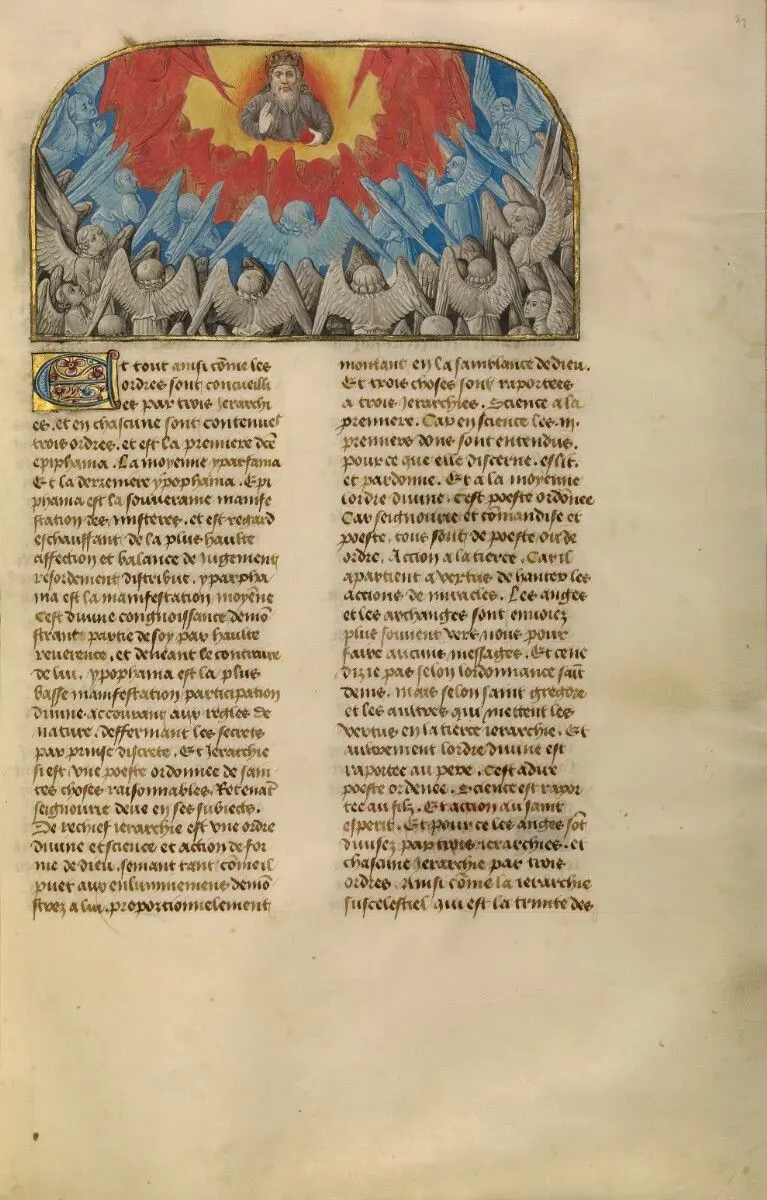 Et tout ainsi cōme les
ordres sont concueilli
et par trois Jerarchi
es. et en chascune sont contenues
trois ordres. et est la premiere dcē
epiphania. La moyenne yparfania
Et la derreniere ypophania. Epi
phania est la souveraine manife
station des misteres. et est regard
eschauffant de la plus haulte
affection et balance de Jugement
resordement distribut. yparpha
nia est la manifestation moyēne
Cest divine congnoissance demō
strant partie de soy par haulte
reverence. et
de lui. ypophania est la plus
basse manifestation participation
divine acourant aux regles de
nature. deffermant les secrets
par prinse discrete. Et Jerarchie
si est une poeste ordonnee de sain
tes choses raisonnables. Retenāt
seignourie deue en ses subiects.
De rechief ierarchie est une ordre
divine et science et action de for
me de dieu. semant tant cōme il
puet aux enluminemens demō
strez a lui. proporcionnelement
montant en la samblance de dieu.
Et trois choses sont raportees
a trois Jerarchies. Science a la
premiere. Car en science les .iii.
premiers dons sont entendus.
pour ce que elle discerne. eslit.
et pardonne. Et a la moyenne
lordre divine. Cest poeste ordōnee
Car seignourie et cōmandise et
poeste. tous sont de poeste ou de
ordre. Action a la tierce. Car il
apartient a vertus de hanter les
actions de miracles. Les anges
et les archanges sont envoiez
plus souvent vers nous pour
faire aucuns messages. Et ce ne
di ie pas selon lordonnance saīt
denis. mais selon saint gregore
et les aultres qui mettent les
vertus en la tierce ierarchie. Et
aultrement lordre divine est
raportee au pere. Cest a dire
poeste ordenee. Science est rapor
tee au filz. Et action au saint
esperit. Et pour ce les anges sōt
divisez par trois ierarchies. et
chascune Jerarchie par trois
ordres. Ainsi cōme la ierarchie
suscelestiel qui est la trinite des